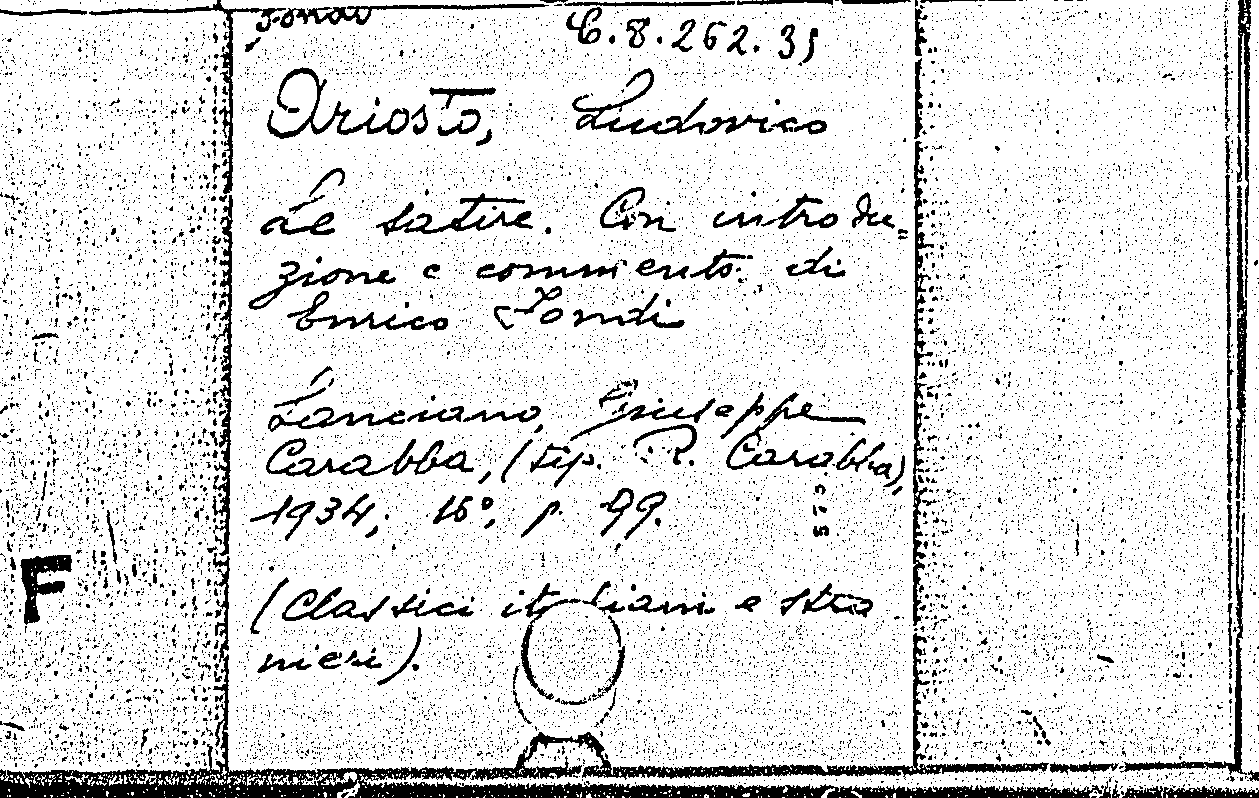 C.8.262.35
Ariosto, Ludovico
Le satire. Con introdu=
zione e commento di
Enrico Fondi
Lanciano, Giuseppe
Carabba, (tip. R. Carabba),
1934, 16°, p. 99.
(Classici italiani e stra
nieri).
F